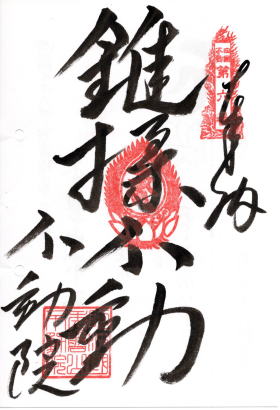 奉拝
錐揉不動
不動院